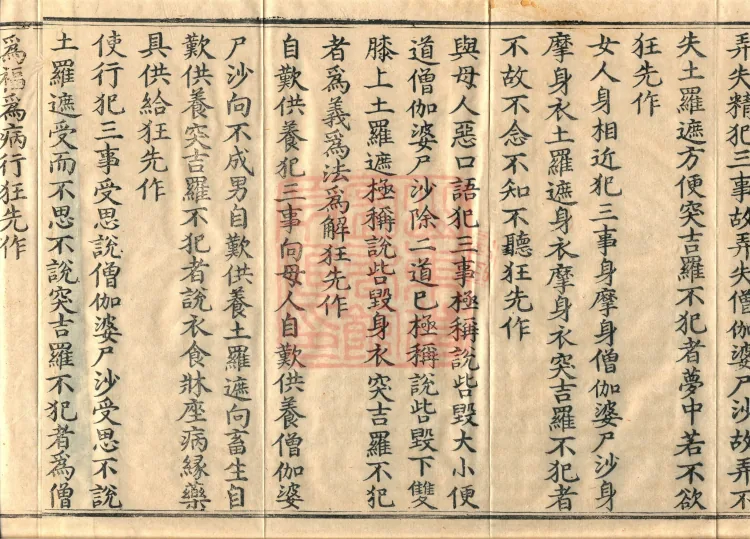 弄失精犯三事故弄失僧伽婆尸沙故弄不
失土羅遮方便突吉羅不犯者夢中若不欲
狂先作
女人身相近犯三事身摩身僧伽婆尸沙身
摩身衣土羅遮身衣摩身衣突吉羅不犯者
不故不念不知不聽狂先作
與母人惡口語犯三事極稱說呰毀大小便
道僧伽婆尸沙除二道已極稱說呰毀下雙
膝上土羅遮極稱說呰毀身衣突吉羅不犯
者為義為法為解狂先作
自歎供養犯三事向母人自歎供養僧伽婆
尸沙向不成男自歎供養土羅遮向畜生自
歎供養突吉羅不犯者說衣食牀座病緣藥
具供給狂先作
使行犯三事受思說僧伽婆尸沙受思不說
土羅遮受而不思不說突吉羅不犯者為僧
為福為病行狂先作